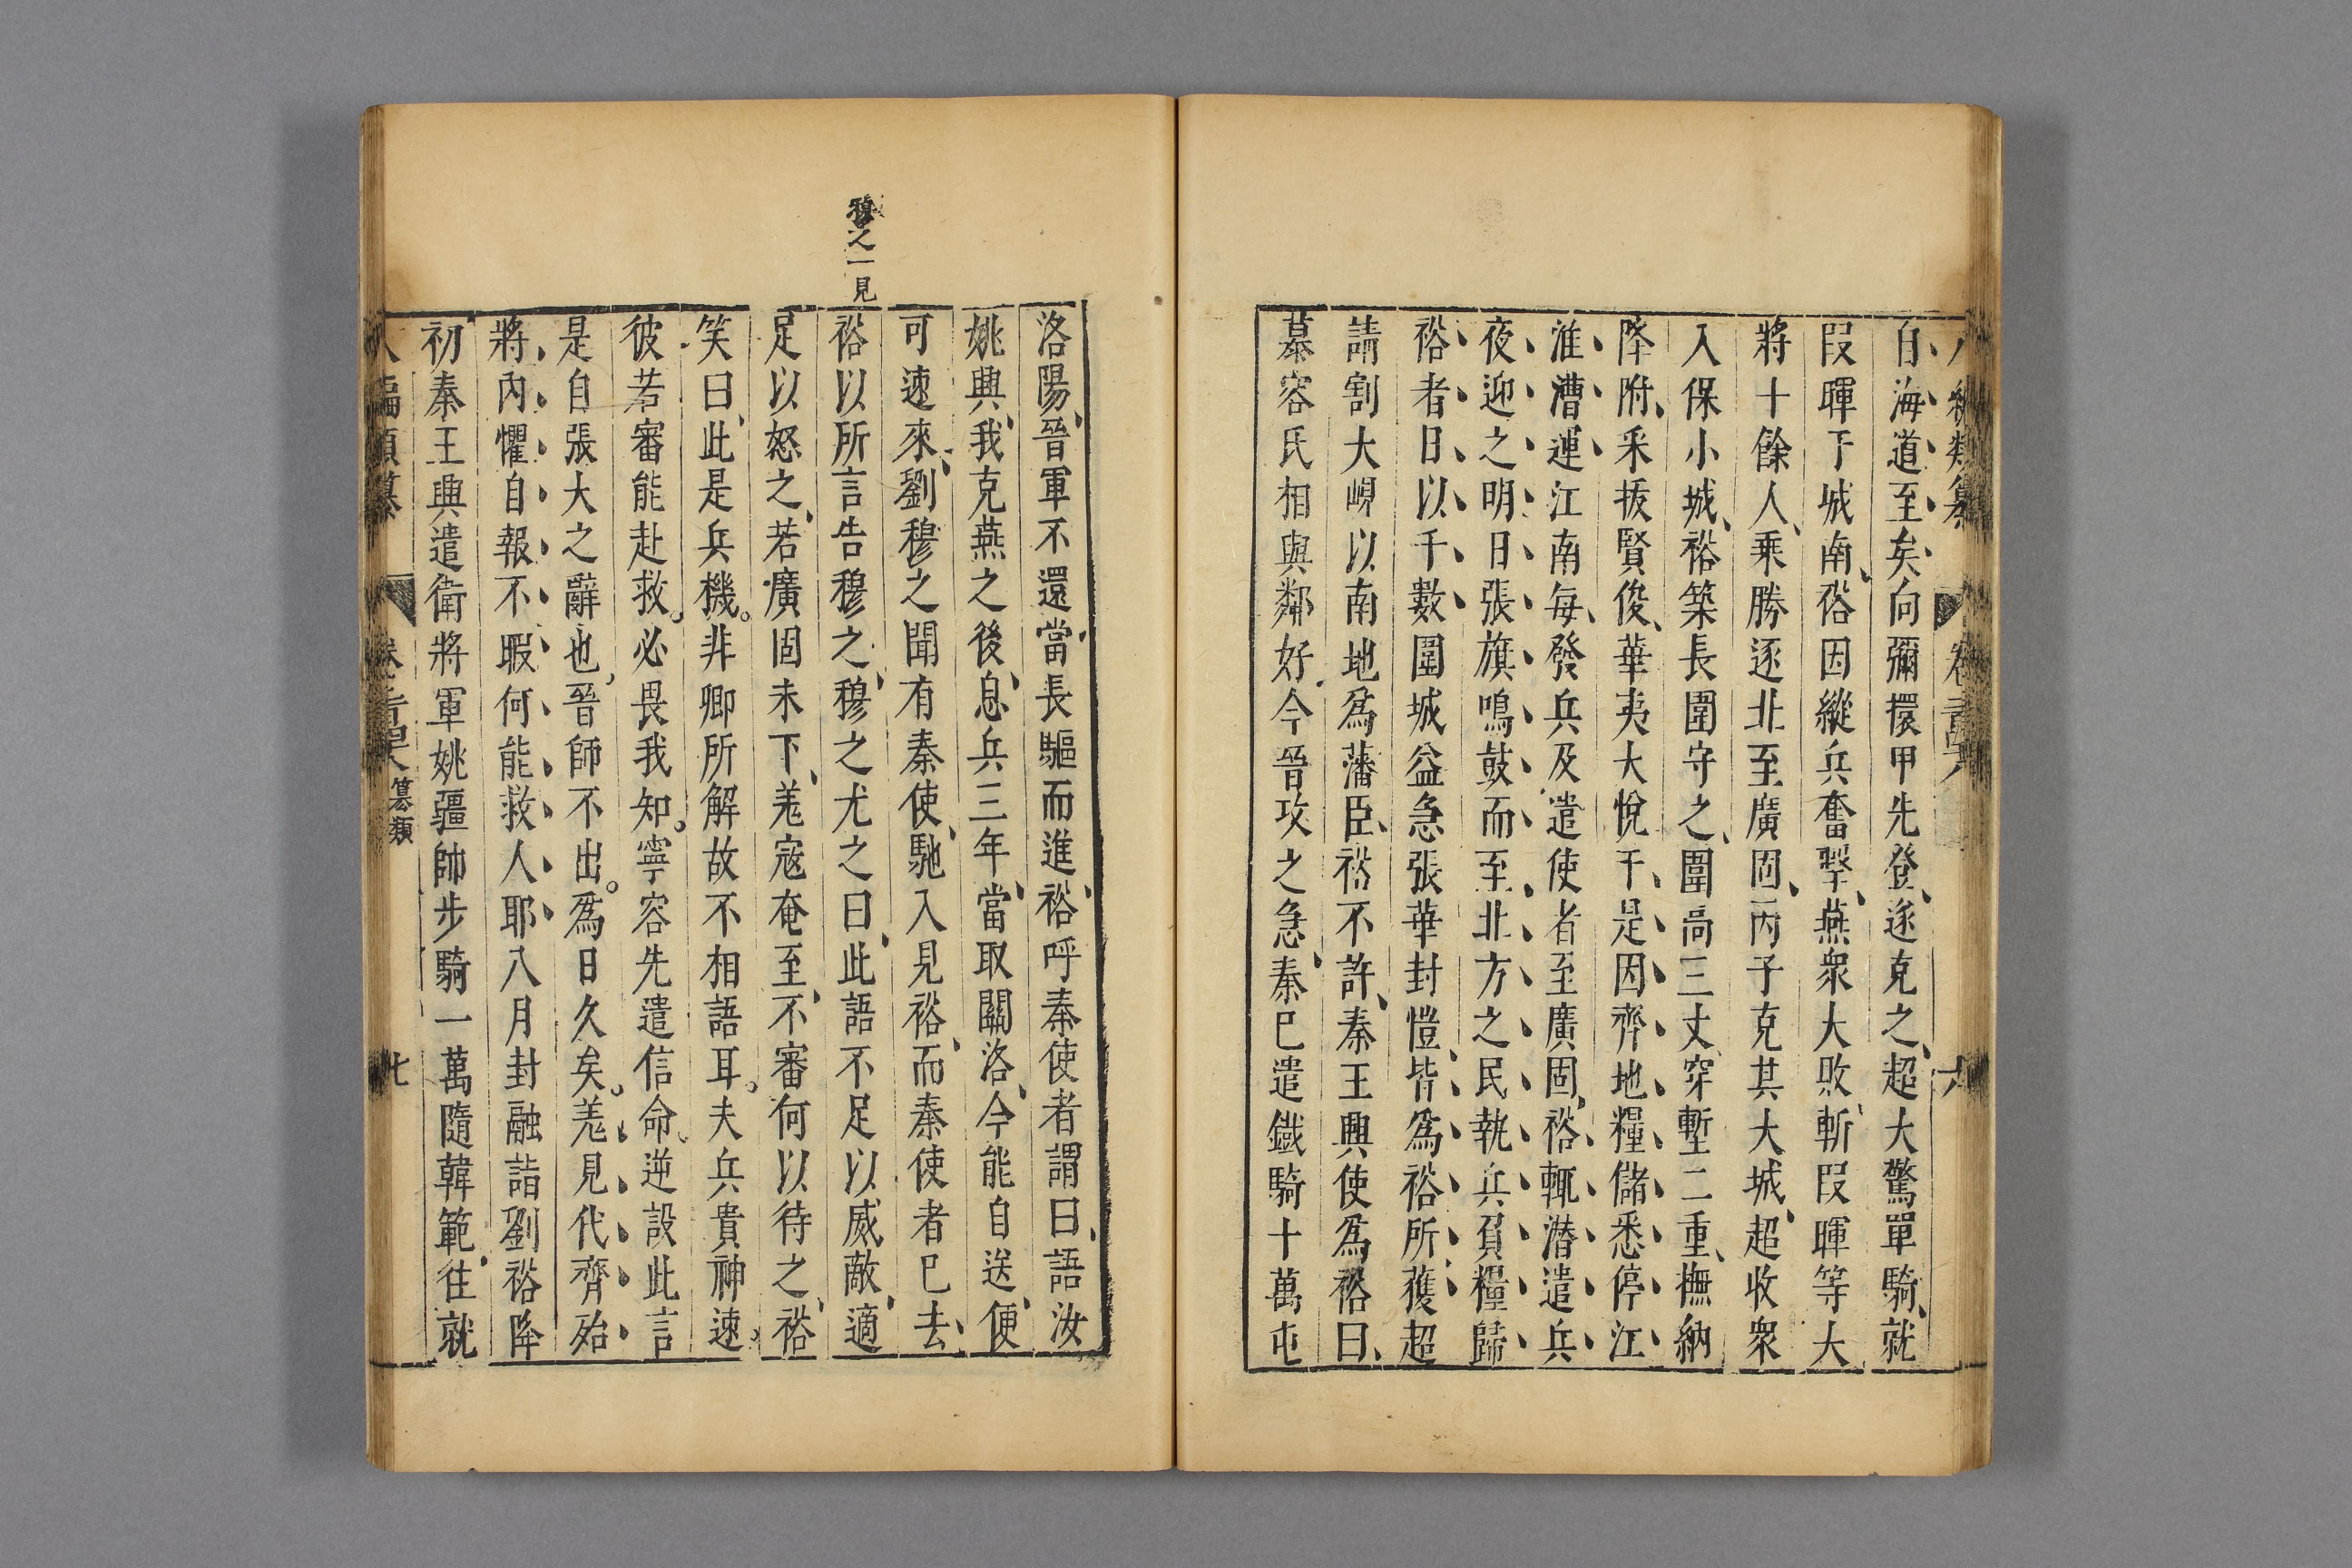 自海道至矣向彌擐甲先登遂克之超大驚單騎就
段暉于城南裕因縱兵奮擊燕衆大敗斬段暉等大
將十餘人乘勝逐北至廣固丙子克其大城超收衆
入保小城裕築長圍守之圍高三丈穿塹二重撫納
降附采拔賢俊華夷大悅于是因齊地糧儲悉停江
淮漕運江南每發兵及遣使者至廣固裕輒潛遣兵
夜迎之明日張旗鳴鼓而至北方之民執兵負糧歸
裕者日以千數圍城益急張華封愷皆爲裕所獲超
請割大峴以南地爲藩臣裕不許秦王興使爲裕曰
慕容氏相與鄰好今晉攻之急秦已遣鐵騎十萬屯
穆之一見
洛陽晉軍不還當長驅而進裕呼秦使者謂曰語汝
姚興我克燕之後息兵三年當取關洛今能自送便
可速來劉穆之聞有秦使馳入見裕而秦使者已去
裕以所言告穆之穆之尤之曰此語不足以威敵適
足以怒之若廣固未下羌寇奄至不審何以待之裕
笑曰此是兵機非卿所解故不相語耳夫兵貴神速
彼若審能赴救必畏我知寧容先遣信命逆設此言
是自張大之辭也晉師不出爲日久矣羌見代齊殆
將內懼自報不暇何能救人耶八月封融詣劉裕降
初秦王興遣衛將軍姚疆帥步騎一萬隨韓範往就
七